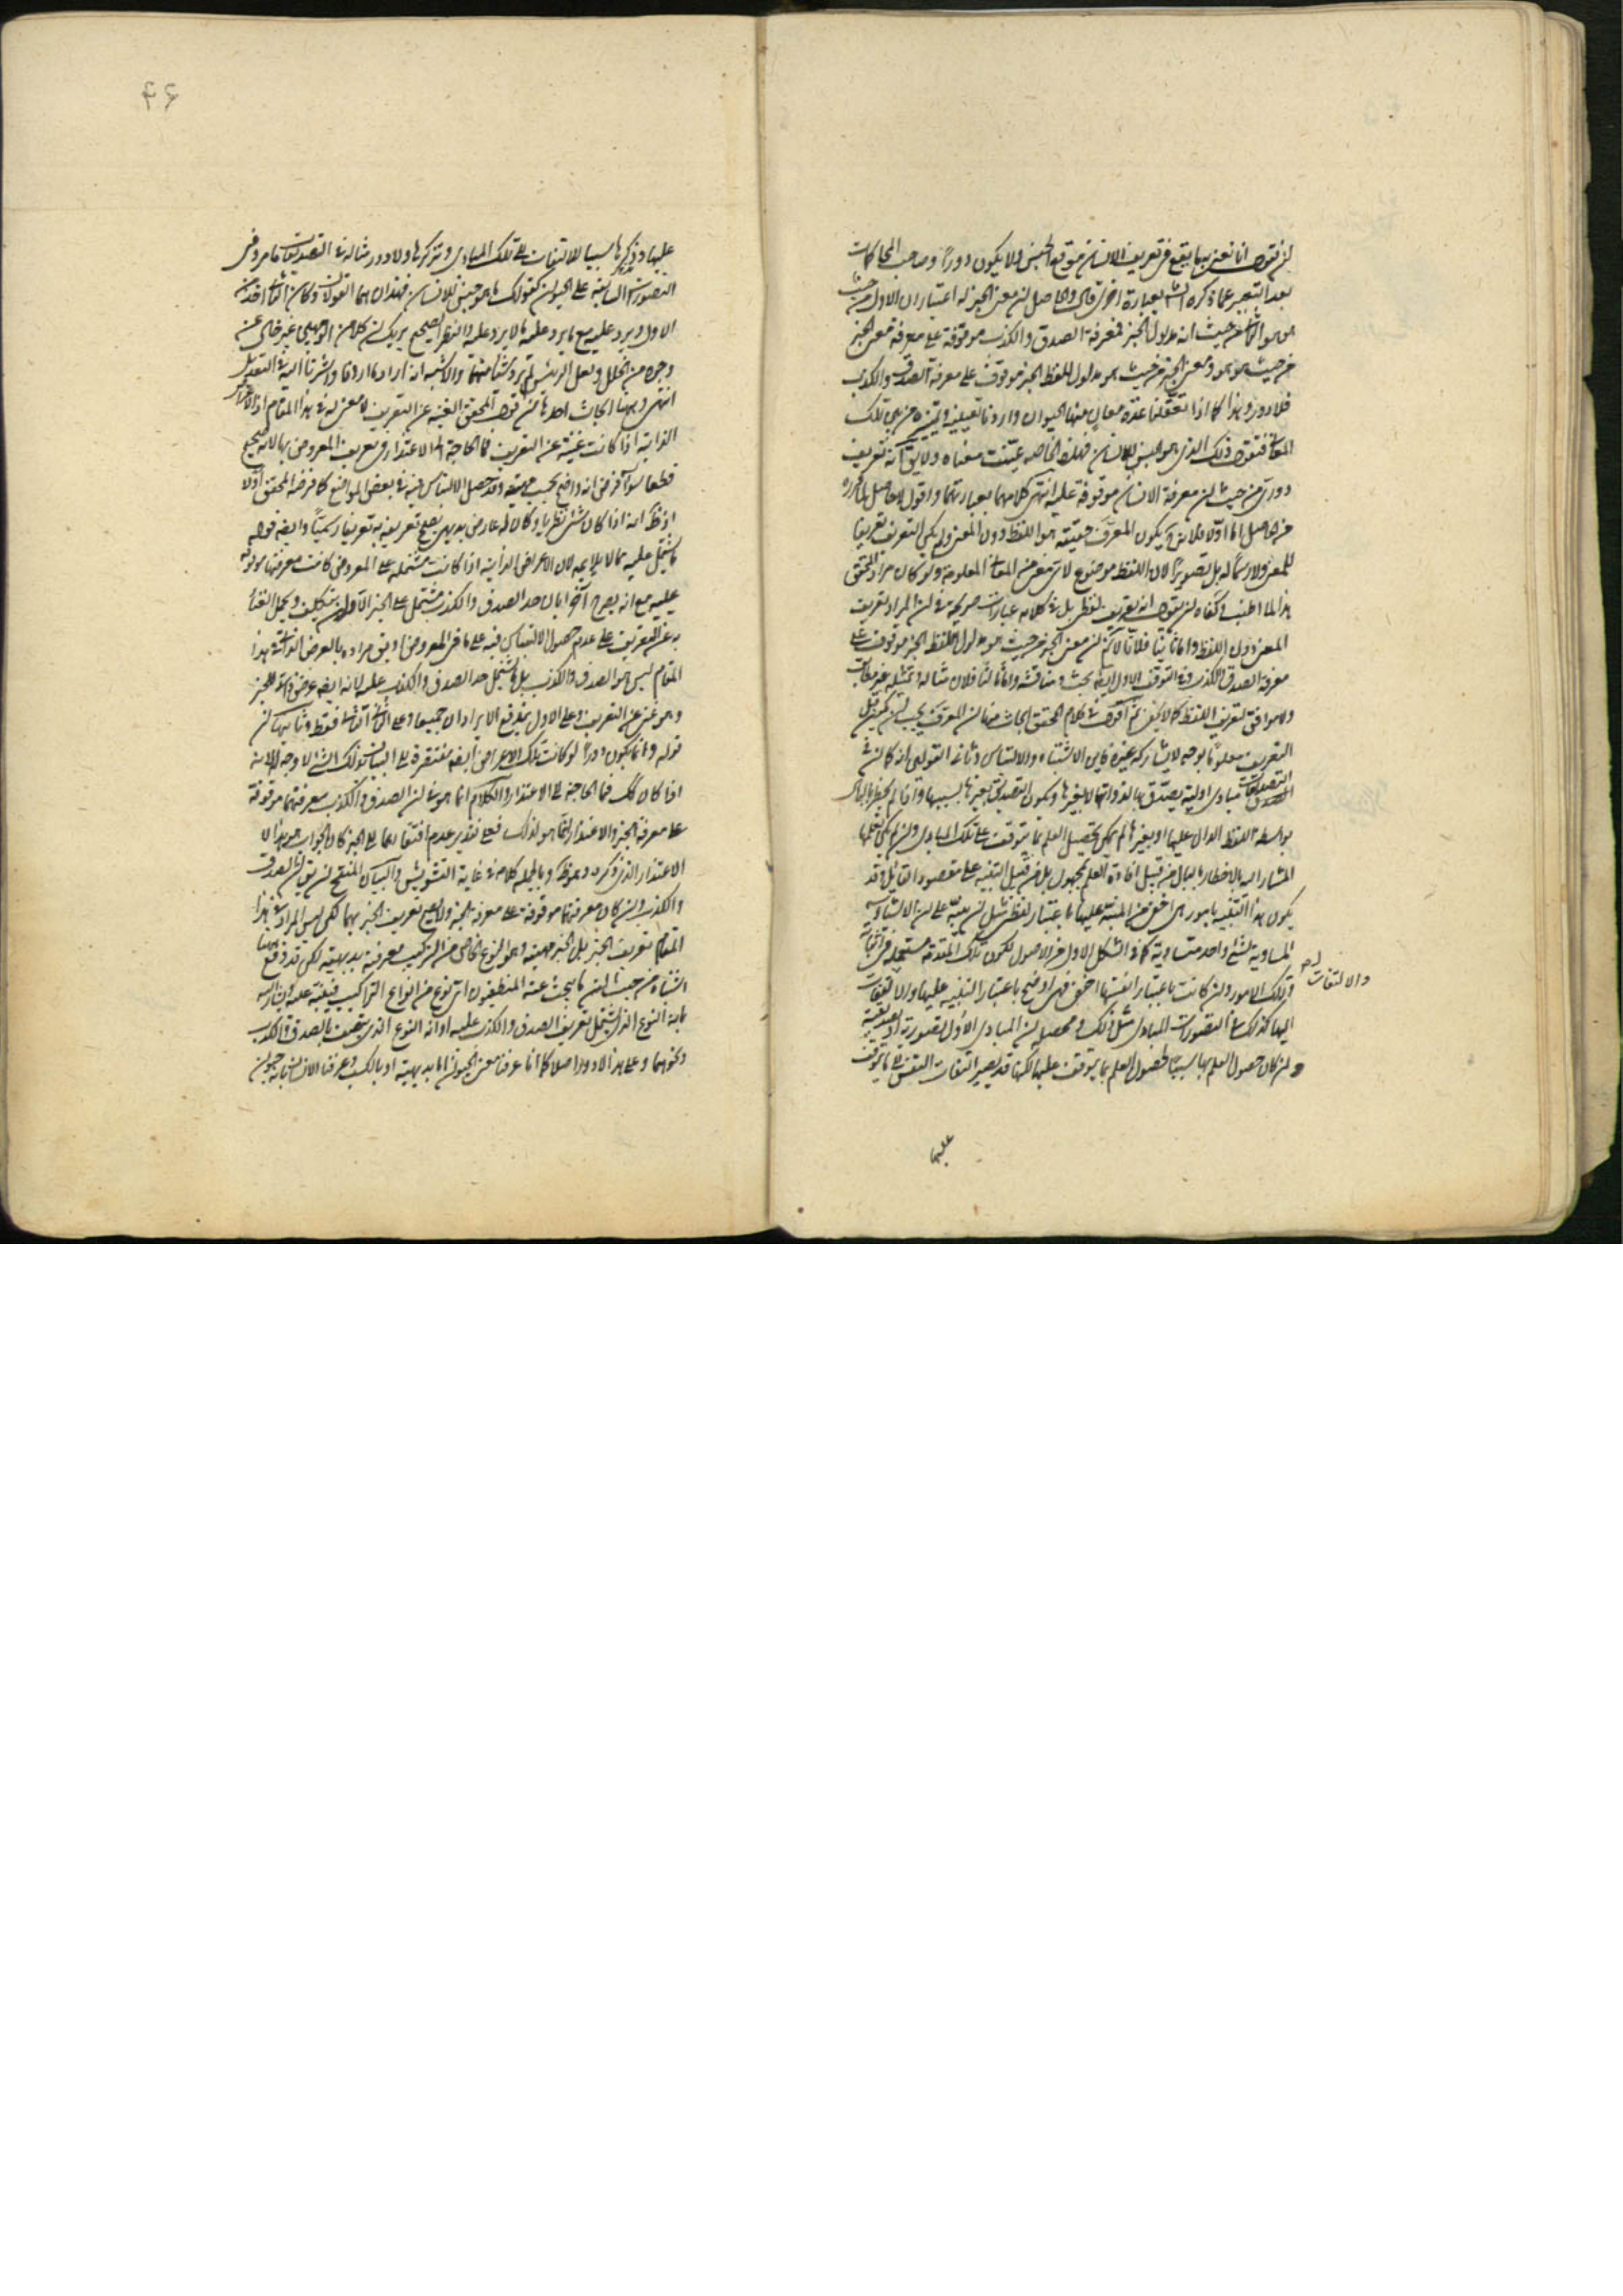 ان نقول انا نعنى بما يقع فى تعريف الانسان موقع الجنس ولا يكون دورا وصاحب المحاكمات
بعد التعبير عما ذكره الش بعبارة اخرى قال والحاصل ان معنى الخبر له اعتباران الاول من حيث
هو هو والثانى من حيث انه مدلول الخبر فمعرفة الصدق والكذب موقوفة على معرفة معنى الخبر
من حيث هو هو ومعنى الخبر من حيث هو مدلول للفظ الخبر موقوف على معرفة الصدق والكذب
فلا دور وهذا كما اذا تعقلنا عدة معان منها الحيوان واردنا تعيينه وتميزه من بين تلك
المعانى فنقول ذلك الذى هو الجنس للانسان فهذه الخاصه عينت معناه ولا يق انه تعريف
دورى من حيث ان معرفة الانسان موقوفة عليه انتهى كلامهما بعبارتهما واقول لا حاصل لما ذكره
من الحاصل اما اولا فلان يكون المعرف حقيقة هو اللفظ دون المعنى ولم يكن التعريف تعريفا
للمعنى ولا رسما له بل تصويرا لان اللفظ موضوع لاى معنى من المعانى المعلومة ولو كان مراد المحقق
هذا لما اطنب وكفاه ان يقول انه تعريف لفظى بل فى كلامه عبارات صريحة فى ان المراد تعريف
المعنى دون اللفظ واما ثانيا فلانا لا نم ان معنى الخبر من حيث هو مدلول للفظ الخبر موقوف على
معرفة الصدق والكذب وفى التوقف الاول ايضا بحث ومناقشة واما ثالثا فلان مثاله وتمثيله غير مطابق
ولا موافق لتعريف اللفظ كما لا يخفى ثم اقول فى كلام المحقق ابحاث منها ان المعرف يجب ان يكون قبل
التعريف معلوما بوجه لا يشاركه غيره فاين الاشتباه والالتباس وثانيه القول بانه كما ان فى
التصديقات مبادى اولية يصدق بها لذواتها لا بغيرها ويكون التصديق بغيرها بسببها واذا لم يخطر بالبال
بواسطة اللفظ الدال عليها او بغيرها لم يمكن تحصيل العلم بما يتوقف على تلك المبادى وان لم يكن
المشار اليه بالاخطار بالبال من قبيل افادة العلم بمجهول بل من قبيل التنبيه على مقصود القائل وقد
يكون هذا التنبيه بامور هى اخفى من المنبه عليها باعتبار لفظى مثل ان ينبه على ان الاشياء
المساوية لشىء واحد متساوية كما فى الشكل الاول من الاصول لكون تلك المقدمة مستعملة فى اثباته
وتلك الامور وان كانت باعتبار انفسها اخفى فهى اوضح باعتبار التنبيه عليها والالتفات
اليها كذلك سائر التصورات المبادى مثل ذلك ومحصله ان المبادى الاول تصورية او تصديقية
وان كان حصول العلم بها سببا لحصول العلم بما يتوقف عليها لكنها قد يصير التفات النفس الى ما يتوقف
والالتفات
عليها
۴۶
عليها وذكرها سببا للالتفات الى تلك المبادى وتذكرها ولا دور مثاله فى التصديقات ما مر وفى
التصورات التنبيه على الحيوان كقولك ما هو جنس للانسان فهذان هما القولان وكان الثانى اخذ من
الاول ويرد عليه مع ما يرد عليه ما لا يرد عليه والنظر الصحيح يريك ان كلا من الوجهين غير خال عن
وجوه من الخلل ولعل الرئيس لم يرد شيئا منهما والاشبه انه اراد ما اردنا واشرنا اليه فى التعديل
انتهى وههنا ابحاث احدها ان قول المحقق الغنية عن التعريف لا معنى له فى هذا المقام اذ الاعراض
الذاتية اذا كانت غنية عن التعريف فما الحاجة الى الاعتذار وتعريف المعروض بها لا يصح
قطعا سواء فرض انه واضح بحسب مهيته وقد حصل الالتباس فيه فى بعض المواضع كما فرضه المحقق اولا
اذ ظ انه اذا كان شىء نظريا وكان له عارض بديهى يصح تعريفه به تعريفا رسميا وايضا قوله
يشتمل عليه مما لا يلايمه لان الاعراض الذاتية اذا كانت مشتملة على المعروض كانت معرفتها موقوفة
عليه مع انه يصرح آخرا بان حد الصدق والكذب مشتمل على الخبر الا ان يتكلف ويحمل الغناء
به عن التعريف على عدم حصول الالتباس فيه على ما فى المعروض او يق مراده بالعرض الذاتى فى هذا
المقام ليس هو الصدق والكذب بل ما يشتمل حد الصدق والكذب عليه لانه ايضا عرض ذاتى للخبر
وهو غنى عن التعريف وعلى الاول يندفع الايرادان جميعا وعلى الثانى الثانى فقط وثانيها ان
قوله وانما يكون دورا لو كانت تلك الاعراض ايضا مفتقرة الى البيان بذلك الشىء لا وجه له لانه
اذا كان كك فما الحاجة الى الاعتذار والكلام انما هو فى ان الصدق والكذب معرفتهما موقوفة
على معرفة الخبر والاعتذار انما هو لذلك فعلى تقدير عدم افتقارهما الى الخبر كان الجواب هو هذا لا
الاعتذار الذى ذكره وهو ظ وبالجملة كلامه فى غاية التشويش والبيان المنقح ان يق ان الصدق
والكذب وان كان معرفتهما موقوفة على معرفة الخبر ولا يصح تعريف الخبر بهما لكن ليس المراد فى هذا
المقام تعريف الخبر بل الخبر مهيته وهو النوع الخاص من التركيب معرفته بديهية لكن قد وقع
اشتباه من حيث ان ما يبحث عنه المنطقيون اى نوع من انواع التراكيب فينبه عليه ويشار اليه
بانه النوع الذى يشتمل تعريف الصدق والكذب عليه او انه النوع الذى يتصف بالصدق والكذب
ونحوهما وعلى هذا لا دور اصلا كما انا عرفنا معنى الحيوان اما بديهية او بالكسب وعرفنا الانسان بانه حيوان